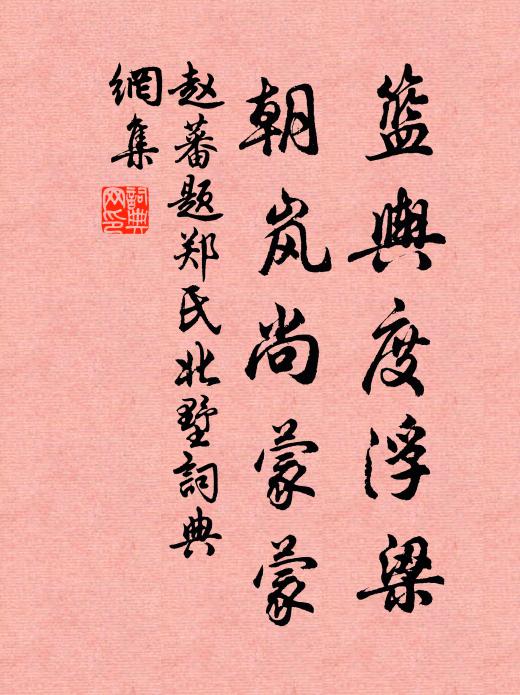 籃輿度浮梁
朝岚尚蒙蒙
赵蕃题郑氏北墅詞典
網集
詞典
网印